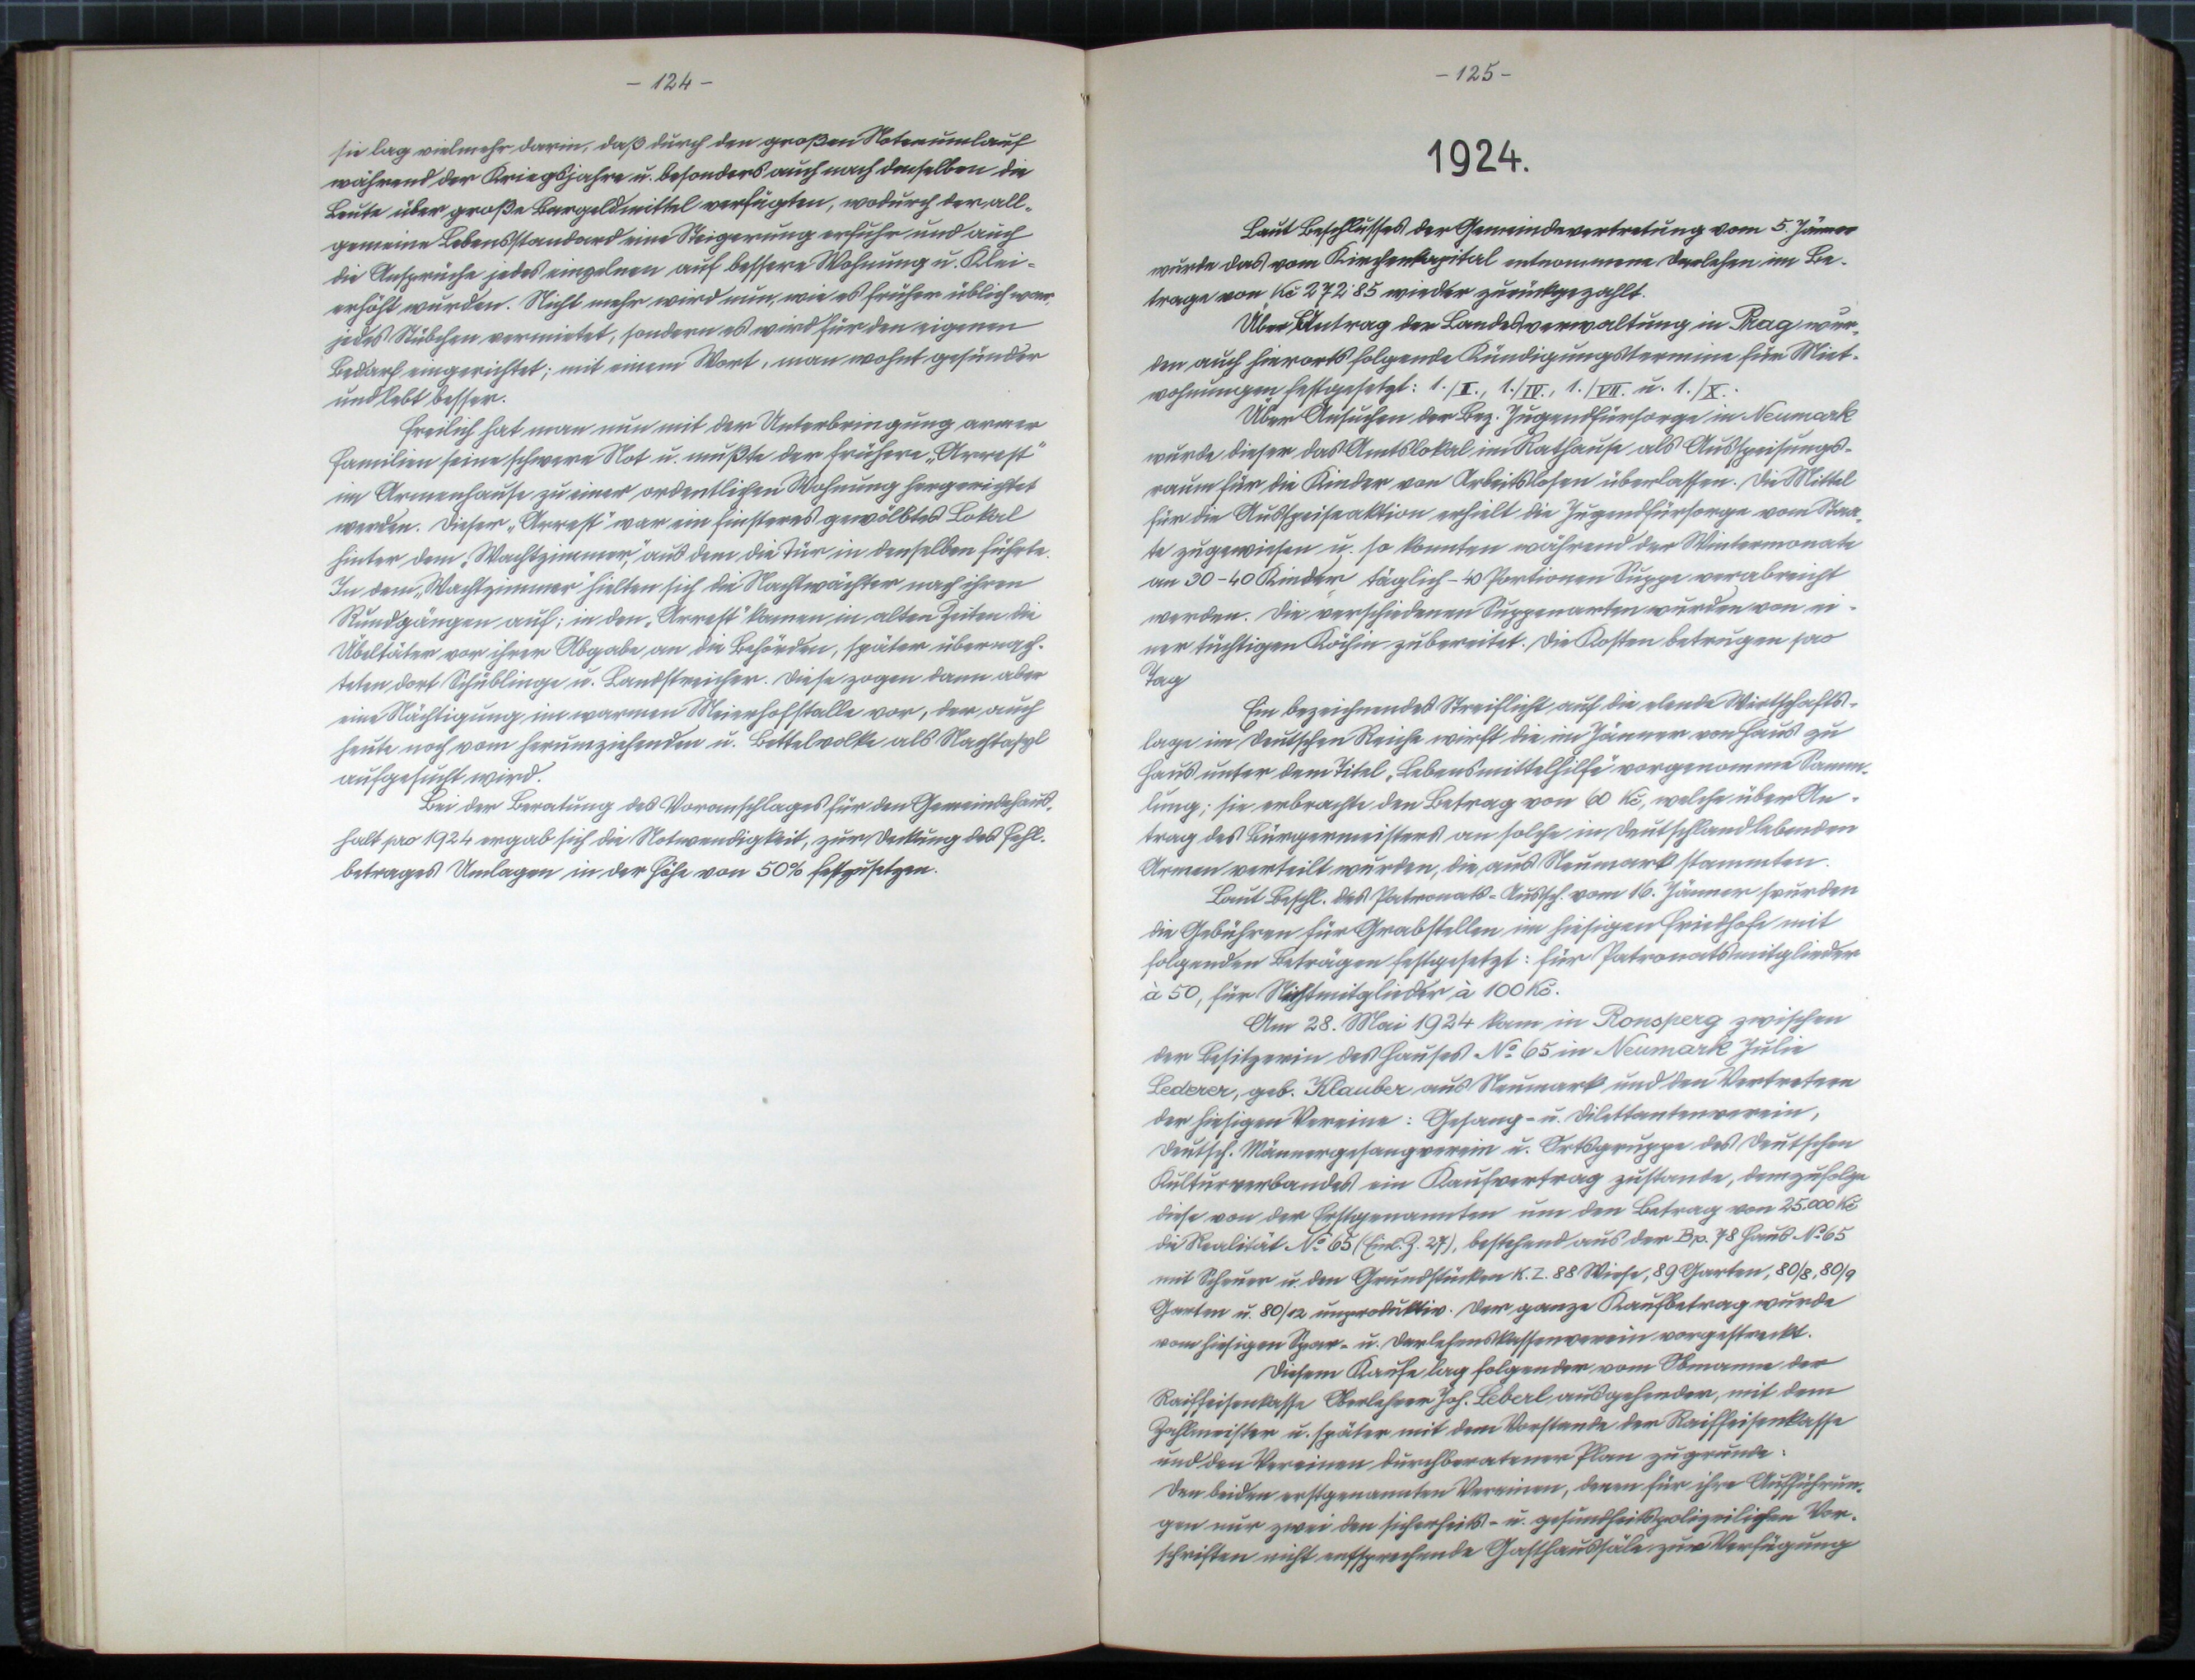 - 124 -
sie lag vielmehr darin, daß durch den großen Notenumlauf
während der Kriegsjahre u. besonders auch nach denselben die
Leute über große Bargeldmittel verfügten, wodurch der all-
gemeine Lebensstandard eine Steigerung erfuhr und auch
die Ansprüche jedes einzelnen auf bessere Wohnung u. Klei-
erhöht wurden. Nicht mehr wird nun, wie es früher üblich war,
jedes Stübchen vermietet, sondern es wird für den eigenen
Bedarf eingerichtet; mit einem Wort, man wohnt gesünder
und lebt besser.
Freilich hat man nun mit der Unterbringung armer
Familien seine schwere Not u. mußte der frühere „Arrest"
im Armenhause zu einer ordentlichen Wohnung hergerichtet
werden. Dieser „Arrest" war ein finsteres gewölbtes Lokal
hinter dem „Wachtzimmer", aus dem die Tür in denselben führte.
In dem „Wachtzimmer" hielten sich die Nachtwächter nach ihren
Rundgängen auf; in den „Arrest" kamen in alten Zeiten die
Übeltäter vor ihrer Abgabe an die Behörden, später übernach-
teten dort Schüblinge u. Landstreicher. Diese zogen dann aber
eine Nächtigung im warmen Meierhofstalle vor, der auch
heute noch vom herumziehenden u. Bettelvolke als Nachtasyl
aufgesucht wird.
Bei der Beratung des Voranschlages für den Gemeindehaus-
halt pro 1924 ergab sich die Notwendigkeit, zur Deckung des Fehl-
betrages Umlagen in der Höhe von 50% festzusetzen.
- 125 -
1924.
Laut Beschlusses der Gemeindevertretung vom 5. Jänner
wurde das vom Kirchenkapital entnommene Darlehen im Be-
trage von Kč 272·85 wieder zurückgezahlt.
Über Antrag der Landesverwaltung in Prag wur-
den auch hierorts folgende Kündigungstermine für Miet-
wohnungen festgesetzt: 1./I., 1./IV., 1./VII. u. 1./X.
Über Ansuchen der Bez. Jugendfürsorge in Neumark
wurde dieser das Amtslokal im Rathause als Ausspeisungs-
raum für die Kinder von Arbeitslosen überlassen. Die Mittel
für die Ausspeiseaktion erhielt die Jugendfürsorge vom Staa-
te zugewiesen u. so konnten während der Wintermonate
an 30-40 Kinder täglich - 40 Portionen Suppe verabreicht
werden. Die verschiedenen Suppenarten wurden von ei-
ner tüchtigen Köchin zubereitet. Die Kosten betrugen pro
Tag
Ein bezeichnendes Streiflicht auf die elende Wirtschafts-
lage im Deutschen Reiche wirft die im Jänner von Haus zu
Haus unter dem Titel „Lebensmittelhilfe" vorgenomme Samm-
lung; sie erbrachte den Betrag von 60 Kč, welche über An-
trag des Bürgermeisters an solche in Deutschland lebenden
Armen verteilt wurden, die aus Neumark stammten.
Laut Beschl. des Patronats-Aussch. vom 16. Jänner wurden
die Gebühren für Grabstellen im hiesigen Friedhofe mit
folgenden Beträgen festgesetzt: für Patronatsmitglieder
à 50, für Nichtmitglieder à 100 Kč.
Am 28. Mai 1924 kam in Ronsperg zwischen
der Besitzerin des Hauses No 65 in Neumark Julie
Lederer, geb. Klauber aus Neumark und den Vertretern
der hiesigen Vereine: Gesang- u. Dilettantenverein,
Deutsch. Männergesangverein u. Ortsgruppe des Deutschen
Kulturverbandes ein Kaufvertrag zustande, demzufolge
diese von der Erstgenannten um den Betrag von 25.000 Kč
die Realität No 65 (Einl. Z. 27), bestehend aus der Bp. 78 Haus No 65
mit Scheuer u. den Grundstücken K. Z. 88 Wiese, 89 Garten, 80/8, 80/9
Garten u. 80/12 unproduktiv. Der ganze Kaufbetrag wurde
vom hiesigen Spar- u. Darlehenskassenverein vorgestreckt.
Diesem Kaufe lag folgender vom Obmanne der
Raiffeisenkasse Oberlehrer Joh. Leberl ausgehender, mit dem
Zahlmeister u. später mit dem Vorstande der Raiffeisenkasse
und den Vereinen durchberatener Plan zugrunde:
Den beiden erstgenannten Vereinen, denen für ihre Aufführun-
gen nur zwei den sicherheits- u. gesundheitspolizeilichen Vor-
schriften nicht entsprechende Gasthaussäle zur Verfügung